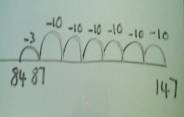 -3 -10 -10 -10 -10 -10 -10
84 87 147